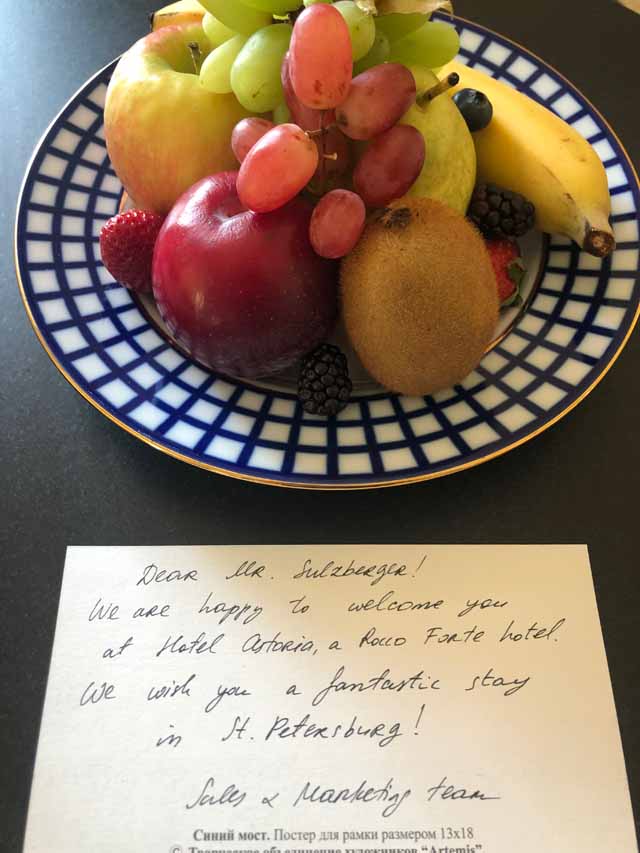 Dear Mr. Sulzberger!
We are happy to welcome you
at Hotel Astoria, a Rocco Forte hotel.
We wish you a fantastic stay
in St. Petersburg!
Sales & Marketing team
Синий мост. Постер для рамки размером 13х18
© Творческое объединение художников “Artemis”